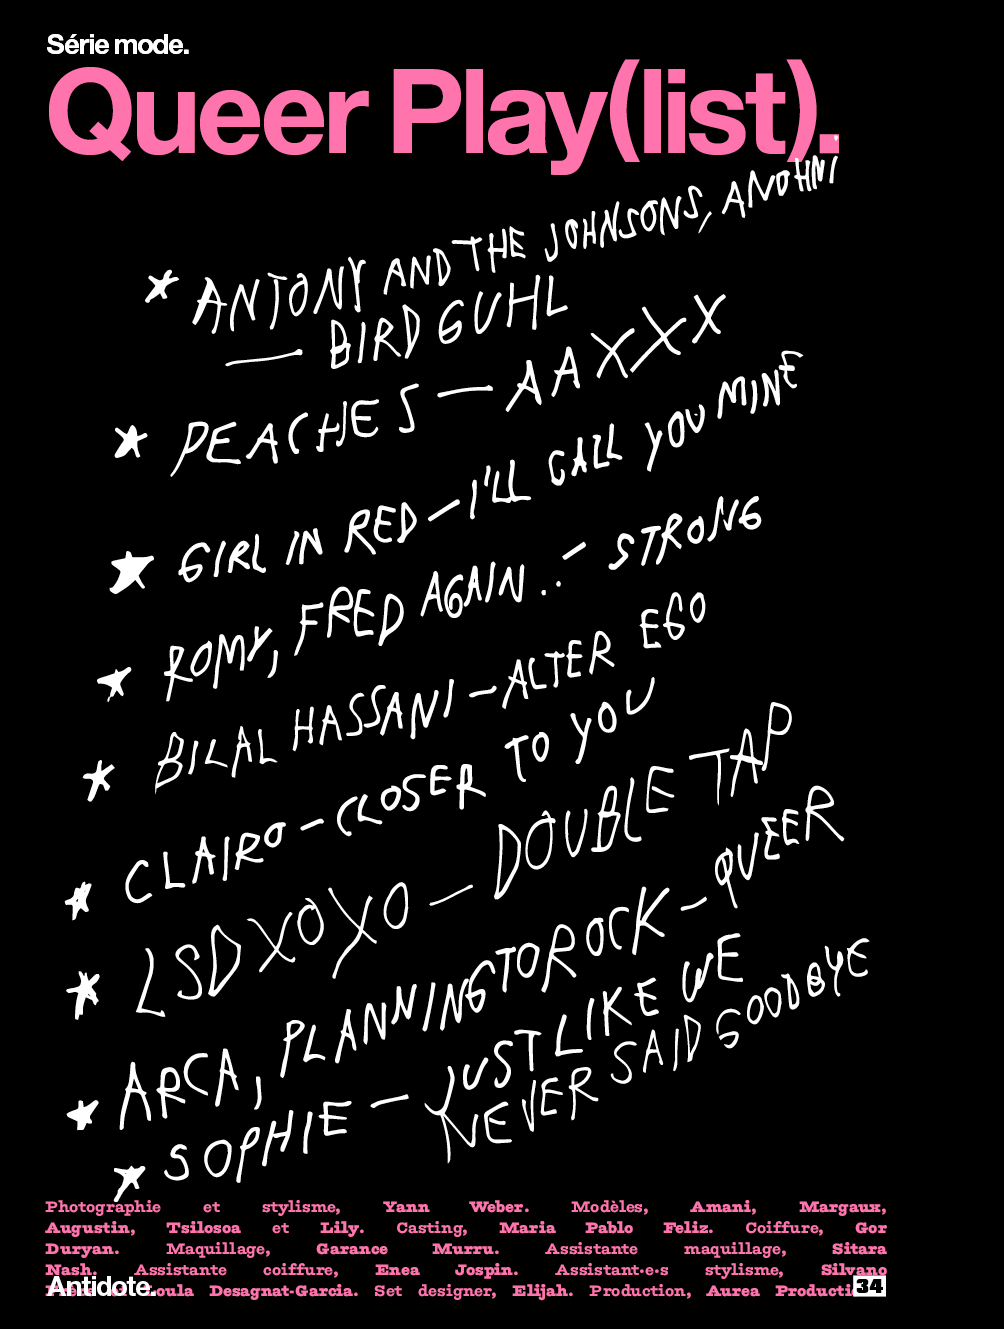 Série mode.
Queer Play(list).
* ANTONY AND THE JOHNSONS, ANOHNI
— BIRD GUHL
* PEACHES — AA XXX
* GIRL IN RED — I'LL CALL YOU MINE
* ROMY, FRED AGAIN.. — STRONG
* BILAL HASSANI — ALTER EGO
* CLAIRO — CLOSER TO YOU
* LSDXOXO — DOUBLE TAP
* ARCA, PLANNINGTOROCK — QUEER
* SOPHIE — JUST LIKE WE
NEVER SAID GOODBYE
Photographie et stylisme, Yann Weber. Modèles, Amani, Margaux,
Augustin, Tsilosoa et Lily. Casting, Maria Pablo Feliz. Coiffure, Gor
Duryan. Maquillage, Garance Murru. Assistante maquillage, Sitara
Nash. Assistante coiffure, Enea Jospin. Assistant·e·s stylisme, Silvano
Desagnat-Garcia. Set designer, Elijah. Production, Aurea
Antidote.
34